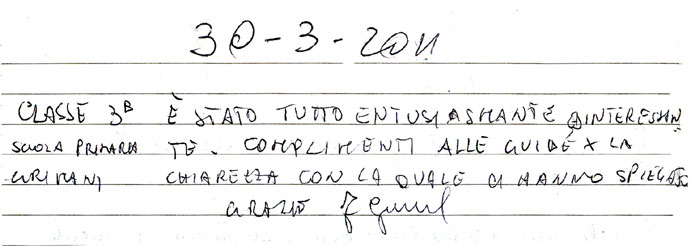 30-3-2011
CLASSE 3B È STATO TUTTO ENTUSIASMANTE INTERESSAN
SCUOLA PRIMARIA TE. COMPLIMENTI ALLE GUIDE X LA
GRIMANI CHIAREZZA CON LA QUALE CI HANNO SPIEGATO
GRAZIE